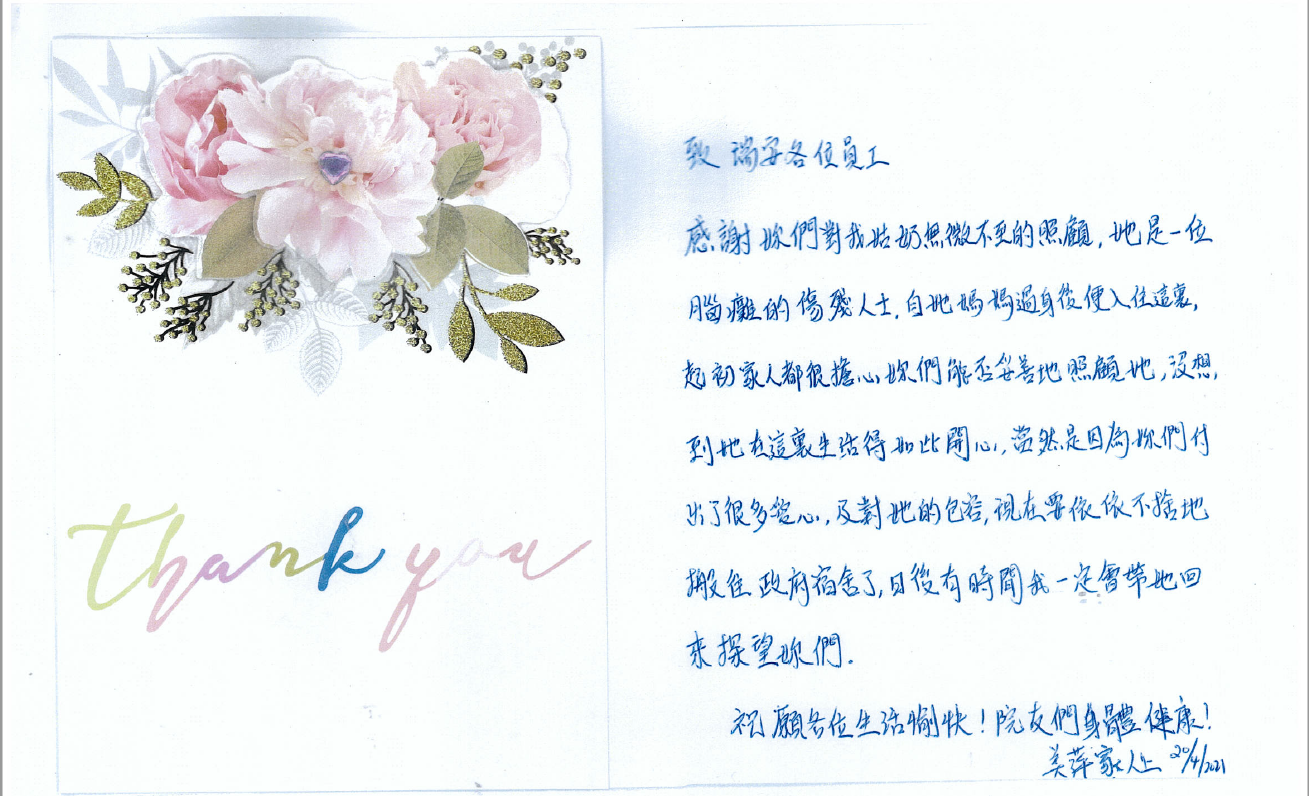 thank you
致 瑞安各位員工
感謝妳們對我姑奶無微不至的照顧，她是一位
腦癱的傷殘人士，自她媽媽過身後便入住這裏，
起初家人都很擔心妳們能否妥善地照顧她，沒想
到她在這裏生活得如此開心，當然是因為妳們付
出了很多愛心，及對她的包容，現在要依依不捨地
搬住政府宿舍了，日後有時間我一定會帶她回
來探望妳們．
祝願各位生活愉快！院友們身體健康！
美萍家人上 20/4/2021